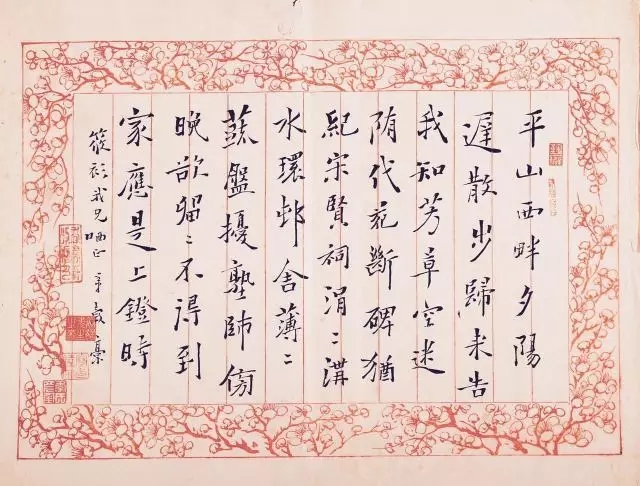 平山西畔夕陽
遲散步歸来告
我知芳草空迷
隋代苑斷碑猶
紀宋賢祠涓〻溝
水環邨舍薄〻
蔬盤擾塾師傍
晚欲留〻不得到
家應是上鐙時
筱衫我兄哂正